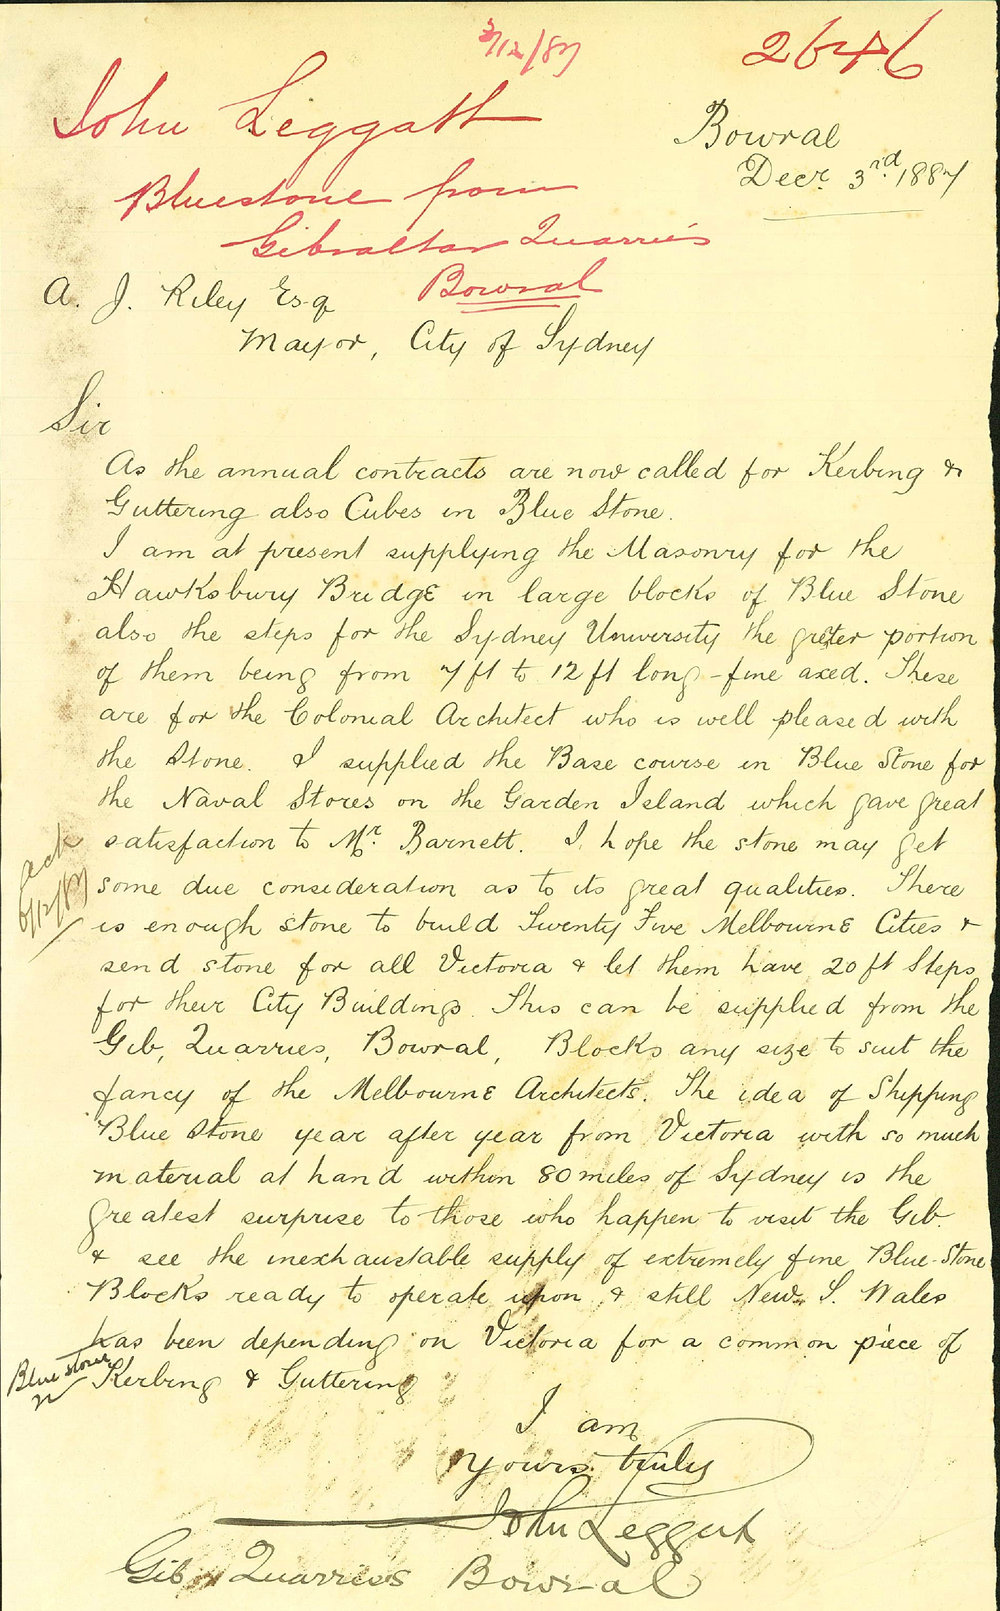 3/12/87
2646
John Leggatt
Bluestone from
Gibraltar Quarries
Bowral
Bowral
Decr. 3rd 1887
A. J. Riley Esq
Mayor, City of Sydney
Sir
As the annual contracts are now called for Kerbing &
Guttering also Cubes in Blue Stone.
I am at present supplying the Masonry for the
Hawksbury Bridge in large blocks of Blue Stone
also the steps for the Sydney University the greter portion
of them being from 7 ft to 12 ft long - fine axed. These
are for the Colonial Architect who is well pleased with
the Stone. & I supplied the Base course in Blue Stone for
the Naval Stores on the Garden Island which gave great
satisfaction to Mr. Barnett. I hope the stone may get
some due consideration as to its great qualities. There
is enough stone to build Twenty Five Melbourne Cities &
send stone for all Victoria & let them have 20 ft Steps
for their City Buildings. This can be supplied from the
Gib, Quarries, Bowral, Blocks any size to suit the
fancy of the Melbourne Architects. The idea of Shipping
Blue Stone year after year from Victoria with so much
material at hand within 80 miles of Sydney is the
greatest surprise to those who happen to visit the Gib.
& see the inexhaustable supply of extremely fine Blue-Stone
Blocks ready to operate upon & still New S. Wales
has been depending on Victoria for a common piece of
Blue Stone in Kerbing & Guttering
ack
6/12/87
I am
Yours truly
John Leggatt
Gib Quarries Bowral